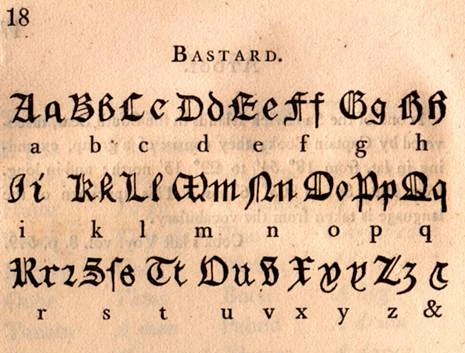 18
BASTARD.
Aa Bb Cc Dd Ee Ff Gg Hh
a b c d e f g h
Ii Kk Ll Mm Nn Oo Pp Qq
i k l m n o p q
Rrꝛ Sſs Tt Uuv Xx yy Zz &
r s t u v x y z &